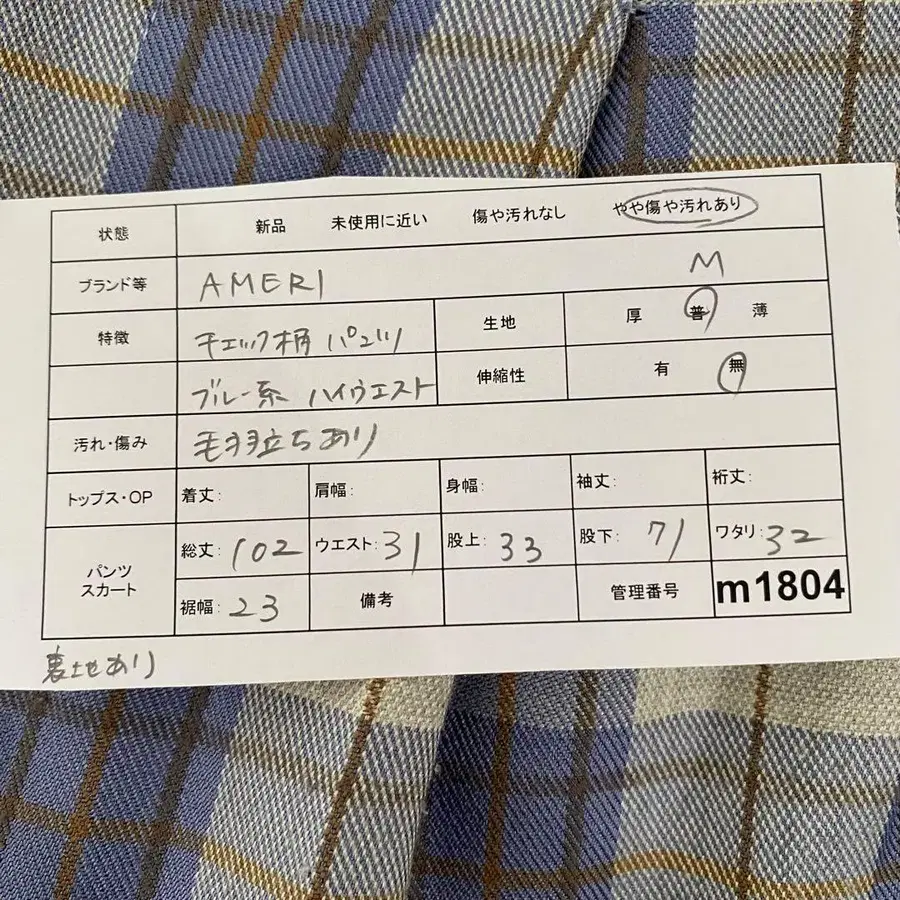 状態 新品 未使用に近い 傷や汚れなし やや傷や汚れあり
ブランド等 AMERI M
特徴 チェック柄 パンツ 生地 厚 普 薄
ブルー系 ハイウエスト 伸縮性 有 無
汚れ・傷み 毛羽立ちあり
トップス・OP 着丈: 肩幅: 身幅: 袖丈: 裄丈:
パンツ スカート 総丈: 102 ウエスト: 31 股上: 33 股下: 71 ワタリ: 32
裾幅: 23 備考 管理番号 m1804
裏地あり